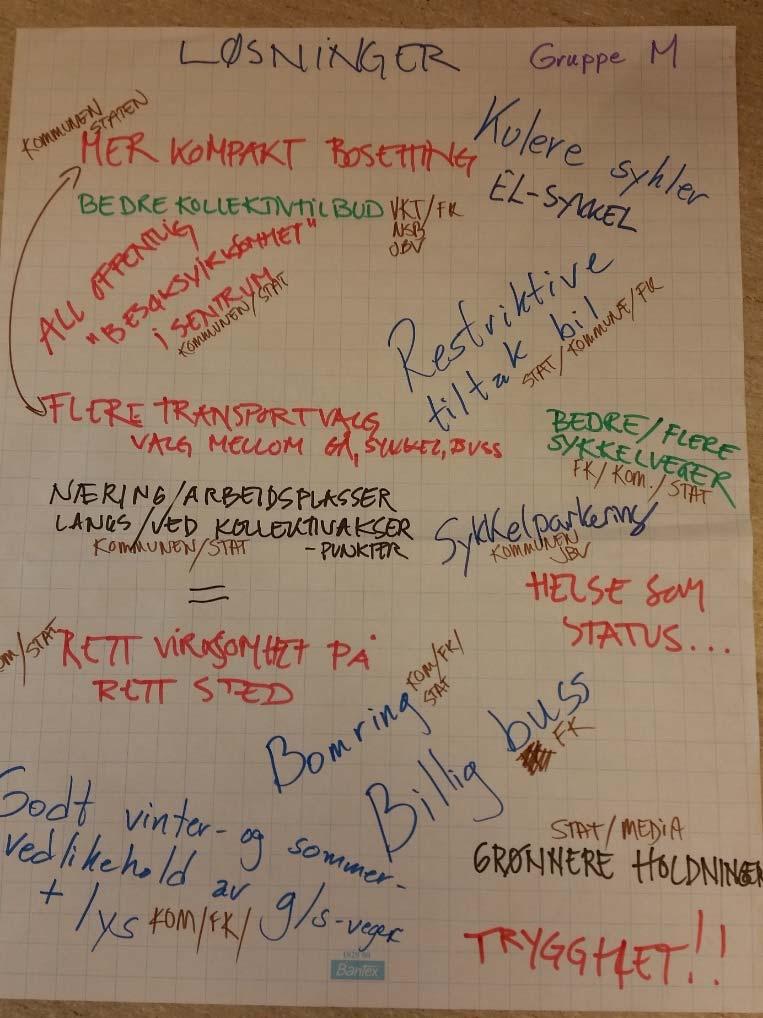 LØSNINGER
Gruppe M
KOMMUNEN
STATEN
MER KOMPAKT BOSETTING
Kulere sykler
EL-SYKKEL
BEDRE KOLLEKTIVTILBUD VKT/FK
NSB
JBV
ALL OFFENTLIG
"BESØKSVIRKSOMHET"
i SENTRUM
KOMMUNEN/STAT
Restriktive
tiltak bil
STAT/KOMMUNE/FK
FLERE TRANSPORTVALG
VALG MELLOM GÅ, SYKKEL, BUSS
BEDRE/FLERE
SYKKELVEGER
FK/KOM./STAT
NÆRING/ARBEIDSPLASSER
LANGS/VED KOLLEKTIVAKSER
KOMMUNEN/STAT
-PUNKTER
Sykkelparkering
KOMMUNEN
JBV
=
HELSE SOM
STATUS...
KOM/STAT
RETT VIRKSOMHET PÅ
RETT STED
Bomring
KOM/FK/
STAT
Billig buss
FK
Godt vinter- og sommer-
vedlikehold av g/s-veger
+ lys KOM/FK/
STAT/MEDIA
GRØNNERE HOLDNINGER
TRYGGHET!!
Bantex